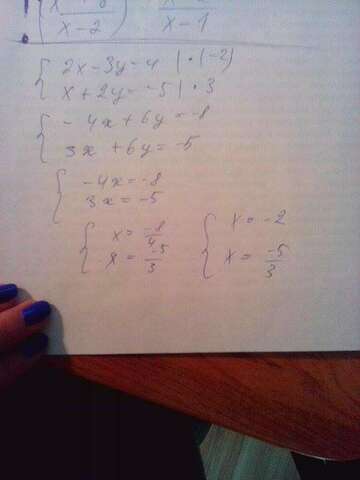 x-2 x-1
2x-3y=4 | ·(-2)
x+2y=-5 | · 3
-4x+6y=-8
3x+6y=-5
-4x=-8
3x=-5
x=-8/4 x=-2
x=-5/3 x=-5/3